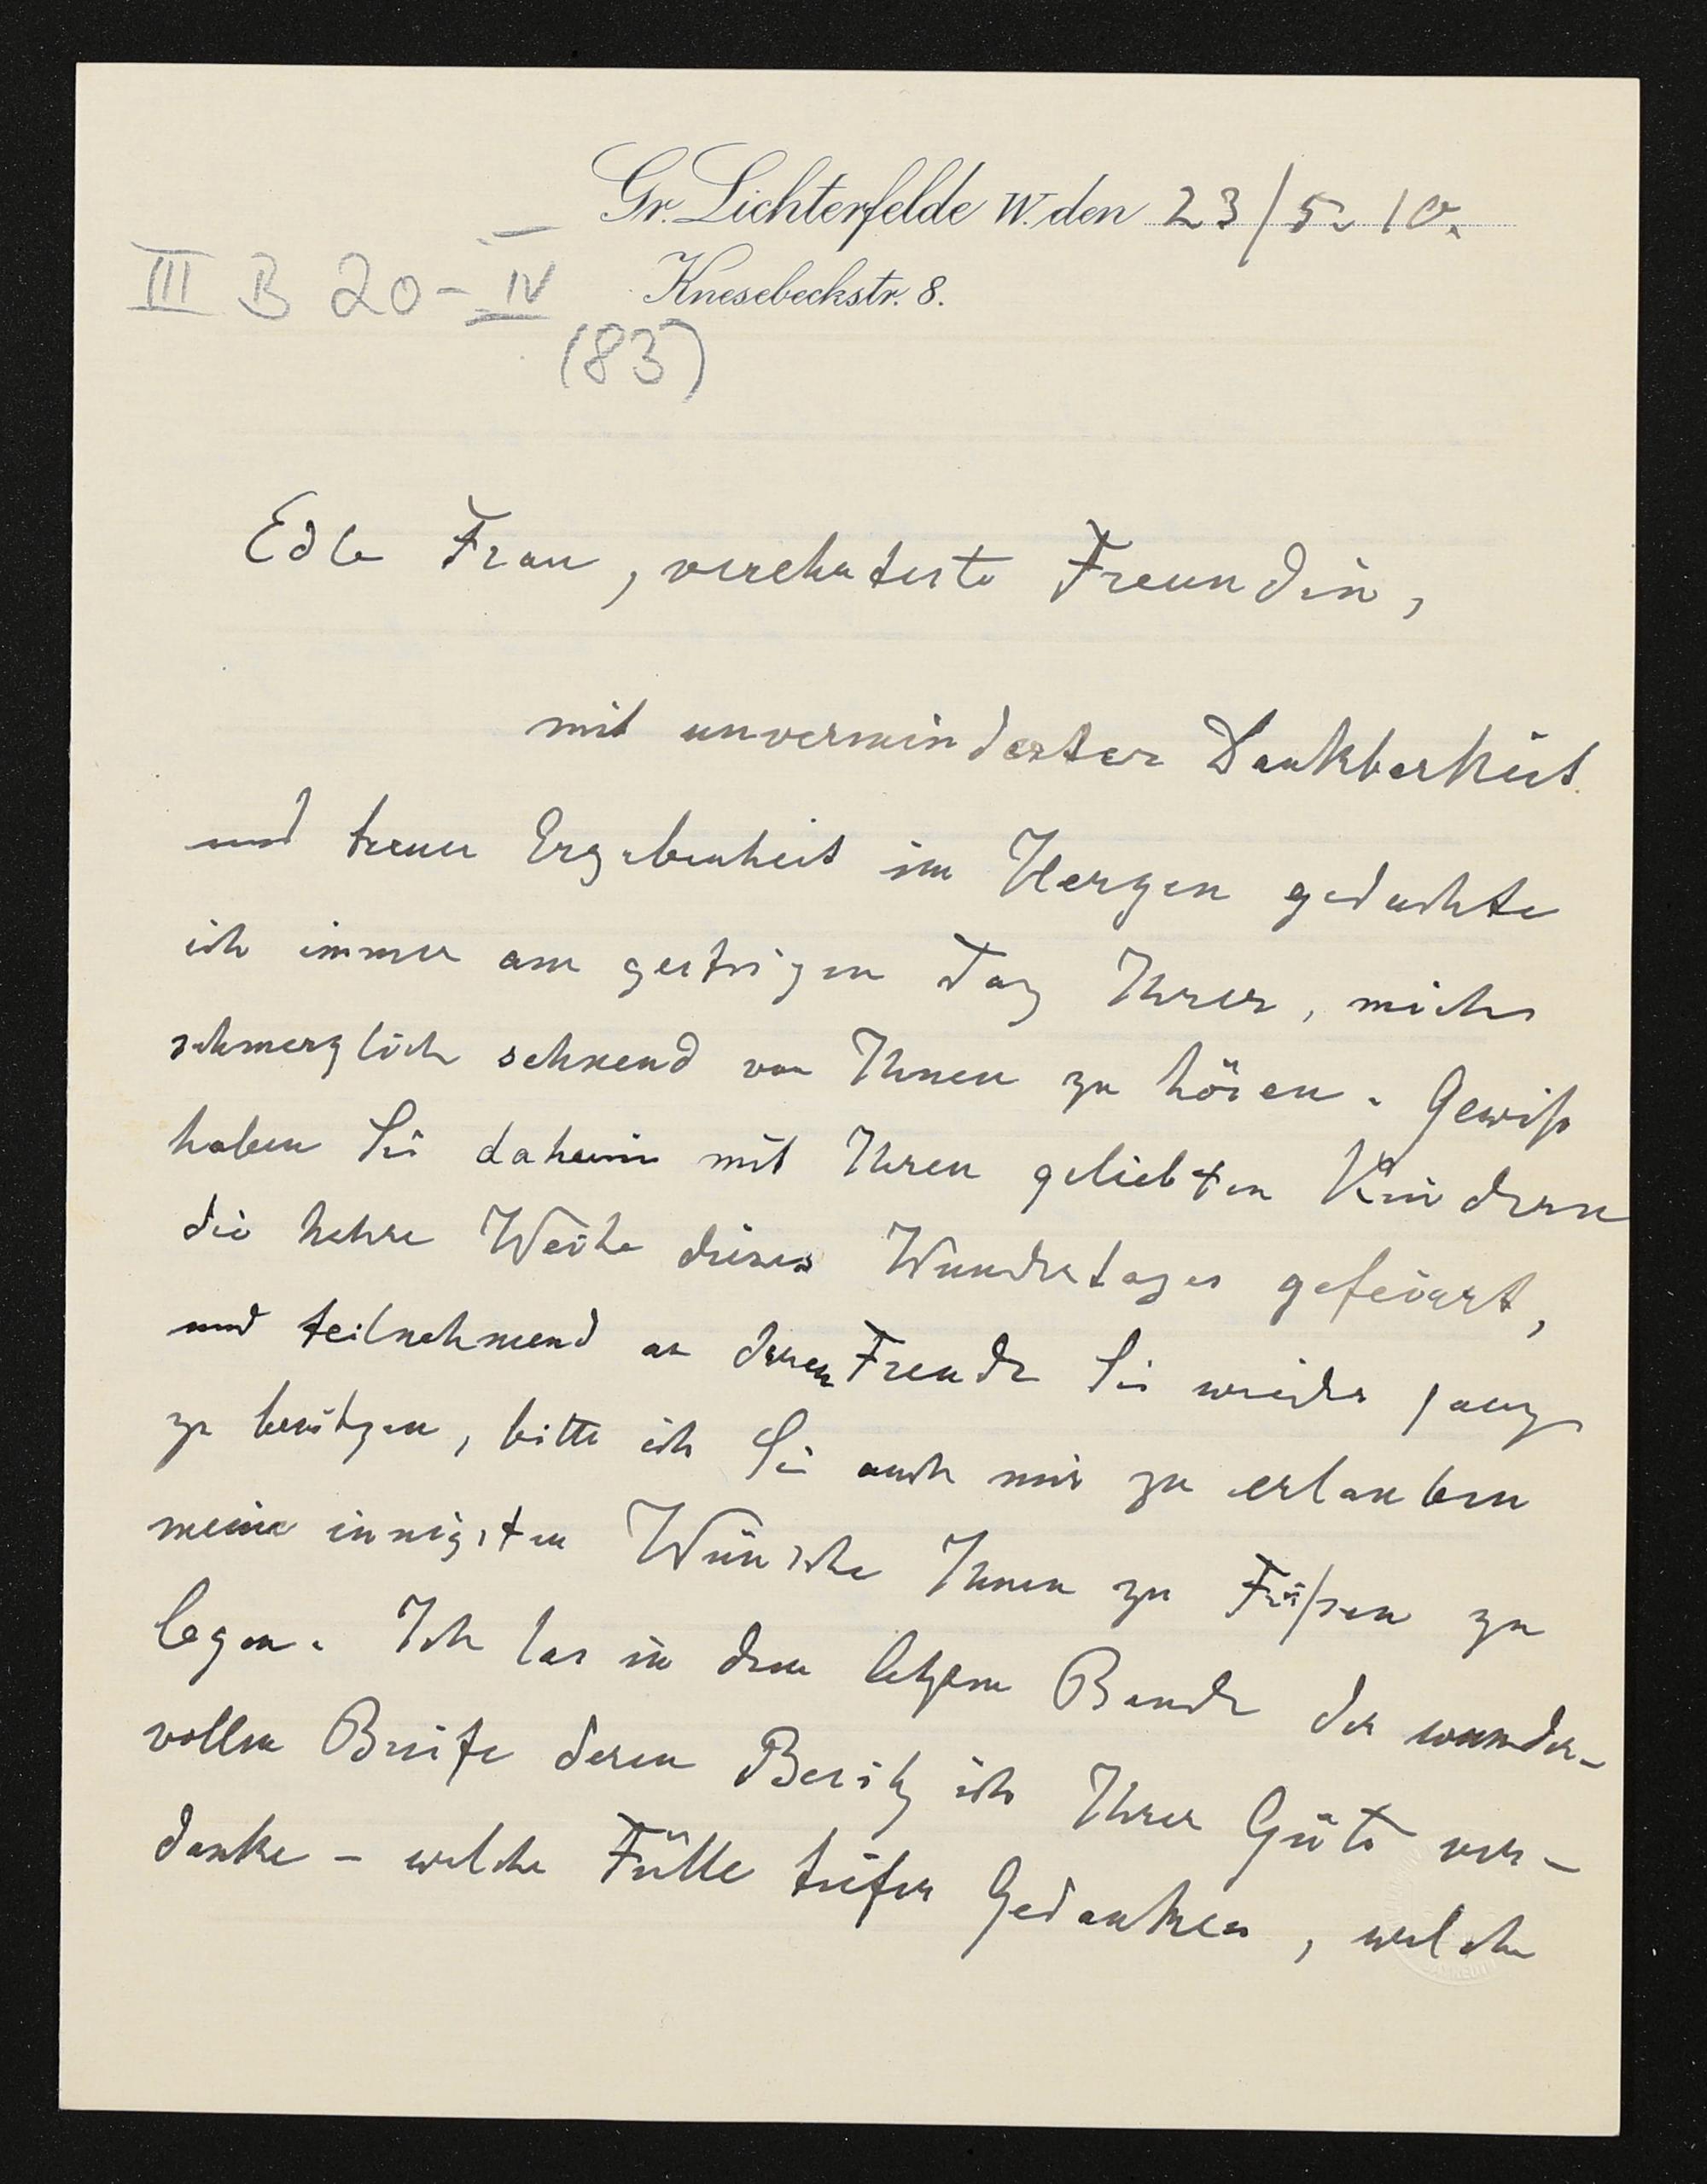 Gr. Lichterfelde W. den 23/5. 10.
III B 20-IV
Knesebeckstr. 8.
(83)
Edle Frau, verehrteste Freundin,
mit unverminderter Dankbarkeit
und treuer Ergebenheit im Herzen gedachte
ich immer am gestrigen Tag Ihrer, mich
schmerzlich sehnend von Ihnen zu hören. Gewiß
haben Sie daheim mit Ihren geliebten Kindern
die hehre Weihe dieses Wundertages gefeiert,
und teilnehmend an deren Freude Sie wieder ganz
zu besitzen, bitte ich Sie auch mir zu erlauben
meine innigsten Wünsche Ihnen zu Füßen zu
legen. Ich las in dem letzten Bande der wunder-
vollen Briefe deren Besitz ich Ihrer Güte ver-
danke – welche Fülle tiefer Gedanken, welche